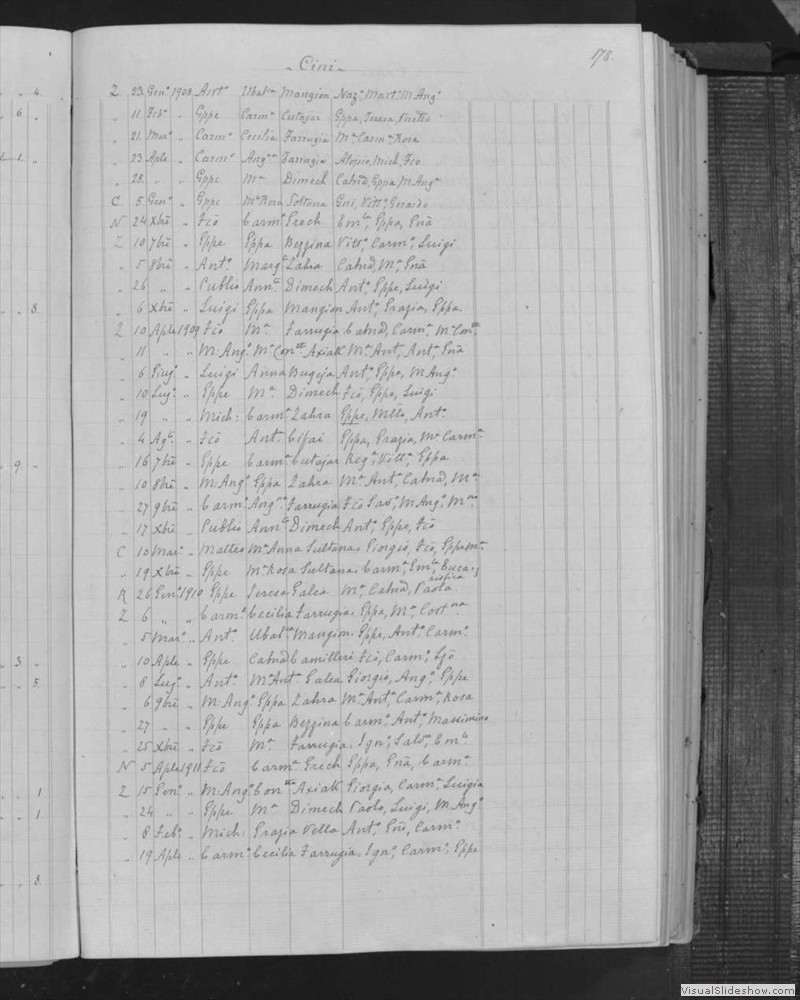 4.
6
1
8.
9
3
5.
1
1
8.
Cini 178.
Z 23 Gen° 1908 Ant° Ubal^na Mangion Naz°, Mart°, M Ang^a
„ 11 Feb° „ Gppe Carm^a Cutajar Gppa, Teresa,
„ 21 Mar° „ Carm° Cecilia Farrugia M^a Carm^a Rosa
„ 23 Aple „ Carm° Ang^na Farrugia Aloisio, Mich, Fco
„ 28 „ „ Gppe M^a Dimech Catnã, Gppa, M Ang^a
C 5 Gen° „ Gppe M^a Rosa Soltana Gni, Vitt^a, Gerardo
N 24 Xbrē „ Fcō Carm^a Grech Em^la, Gppa, Gnã
Z 10 7brē „ Gppe Gppa Bezzina Vitt^a, Carm°, Luigi
„ 5 8brē „ Ant° Marg^ta Zahra Catnã, M^a, Gnã
„ 26 „ „ Publio Ann^ta Dimech Ant°, Gppe, Luigi
„ 6 Xbrē „ Luigi Gppa Mangion Ant°, Grazia, Gppa.
Z 10 Aple 1909 Fcō M^a Farrugia Catnã, Carm^a, M^a Con^tta
„ 11 „ „ M: Ang° M^a Con^tta Axiak M^a Ant, Ant^a, Gnã
„ 6 Giug° „ Luigi Anna Bugeja Ant°, Gppe, M Ang°
„ 10 Lug° „ Gppe M^a Dimech Fcō, Gppe, Luigi
„ 19 „ „ Mich: Carm^a Zahra Gppe, Mtto, Ant°
„ 4 Ag° „ Fcō Ant^a Cifai Gppa, Grazia, M^a Carm^a
„ 16 7brē „ Gppe Carm^a Cutajar Reg^a, Vitt^a, Gppa
„ 10 8brē „ M: Ang° Gppa Zahra M^a Ant, Catnã, M^a
„ 27 9brē „ Carm° Ang^na Farrugia Fcō Sav°, M Ang°, M^no
„ 17 Xbrē „ Publio Ann^ta Dimech Ant°, Gppe, Fcō
C 10 Mar° „ Matteo M^a Anna Sultana, Giorgio, Fcō, Gppe M^a
„ 19 Xbrē „ Gppe M^a Rosa Sultana, Carm^a, Em^la, Euca-
ristica
R 26 Gen° 1910 Gppe Teresa Galea M^a, Catnã, Paola
Z 6 „ „ Carm° Cecilia Farrugia, Gppa, M^a, Cost^na
„ 5 Mar° „ Ant° Ubal^na Mangion, Gppe, Ant°, Carm°
„ 10 Aple „ Gppe Catnã Camilleri Fcō, Carm°, Lzō
„ 8 Lug° „ Ant° M^a Ant^a Galea Giorgio, Ang°, Gppe
„ 6 9brē „ M: Ang° Gppa Zahra M^a Ant, Carm^a, Rosa
„ 27 „ „ Gppe Gppa Bezzina Carm°, Ant°, Massimino
„ 25 Xbrē „ Fcō M^a Farrugia, Ign°, Salv^e, Em^le
N 5 Aple 1911 Fcō Carm^a Grech Gppa, Gnã, Carm^a
Z 15 Gen° „ M: Ang° Con^tta Axiak Giorgia, Carm^a, Luigia
„ 24 „ „ Gppe M^a Dimech Paolo, Luigi, M Ang°
„ 8 Feb° „ Mich: Grazia Vella Ant°, Gni, Carm°
„ 19 Aple „ Carm° Cecilia Farrugia, Ign°, Carm°, Gppe
VisualSlideshow.com